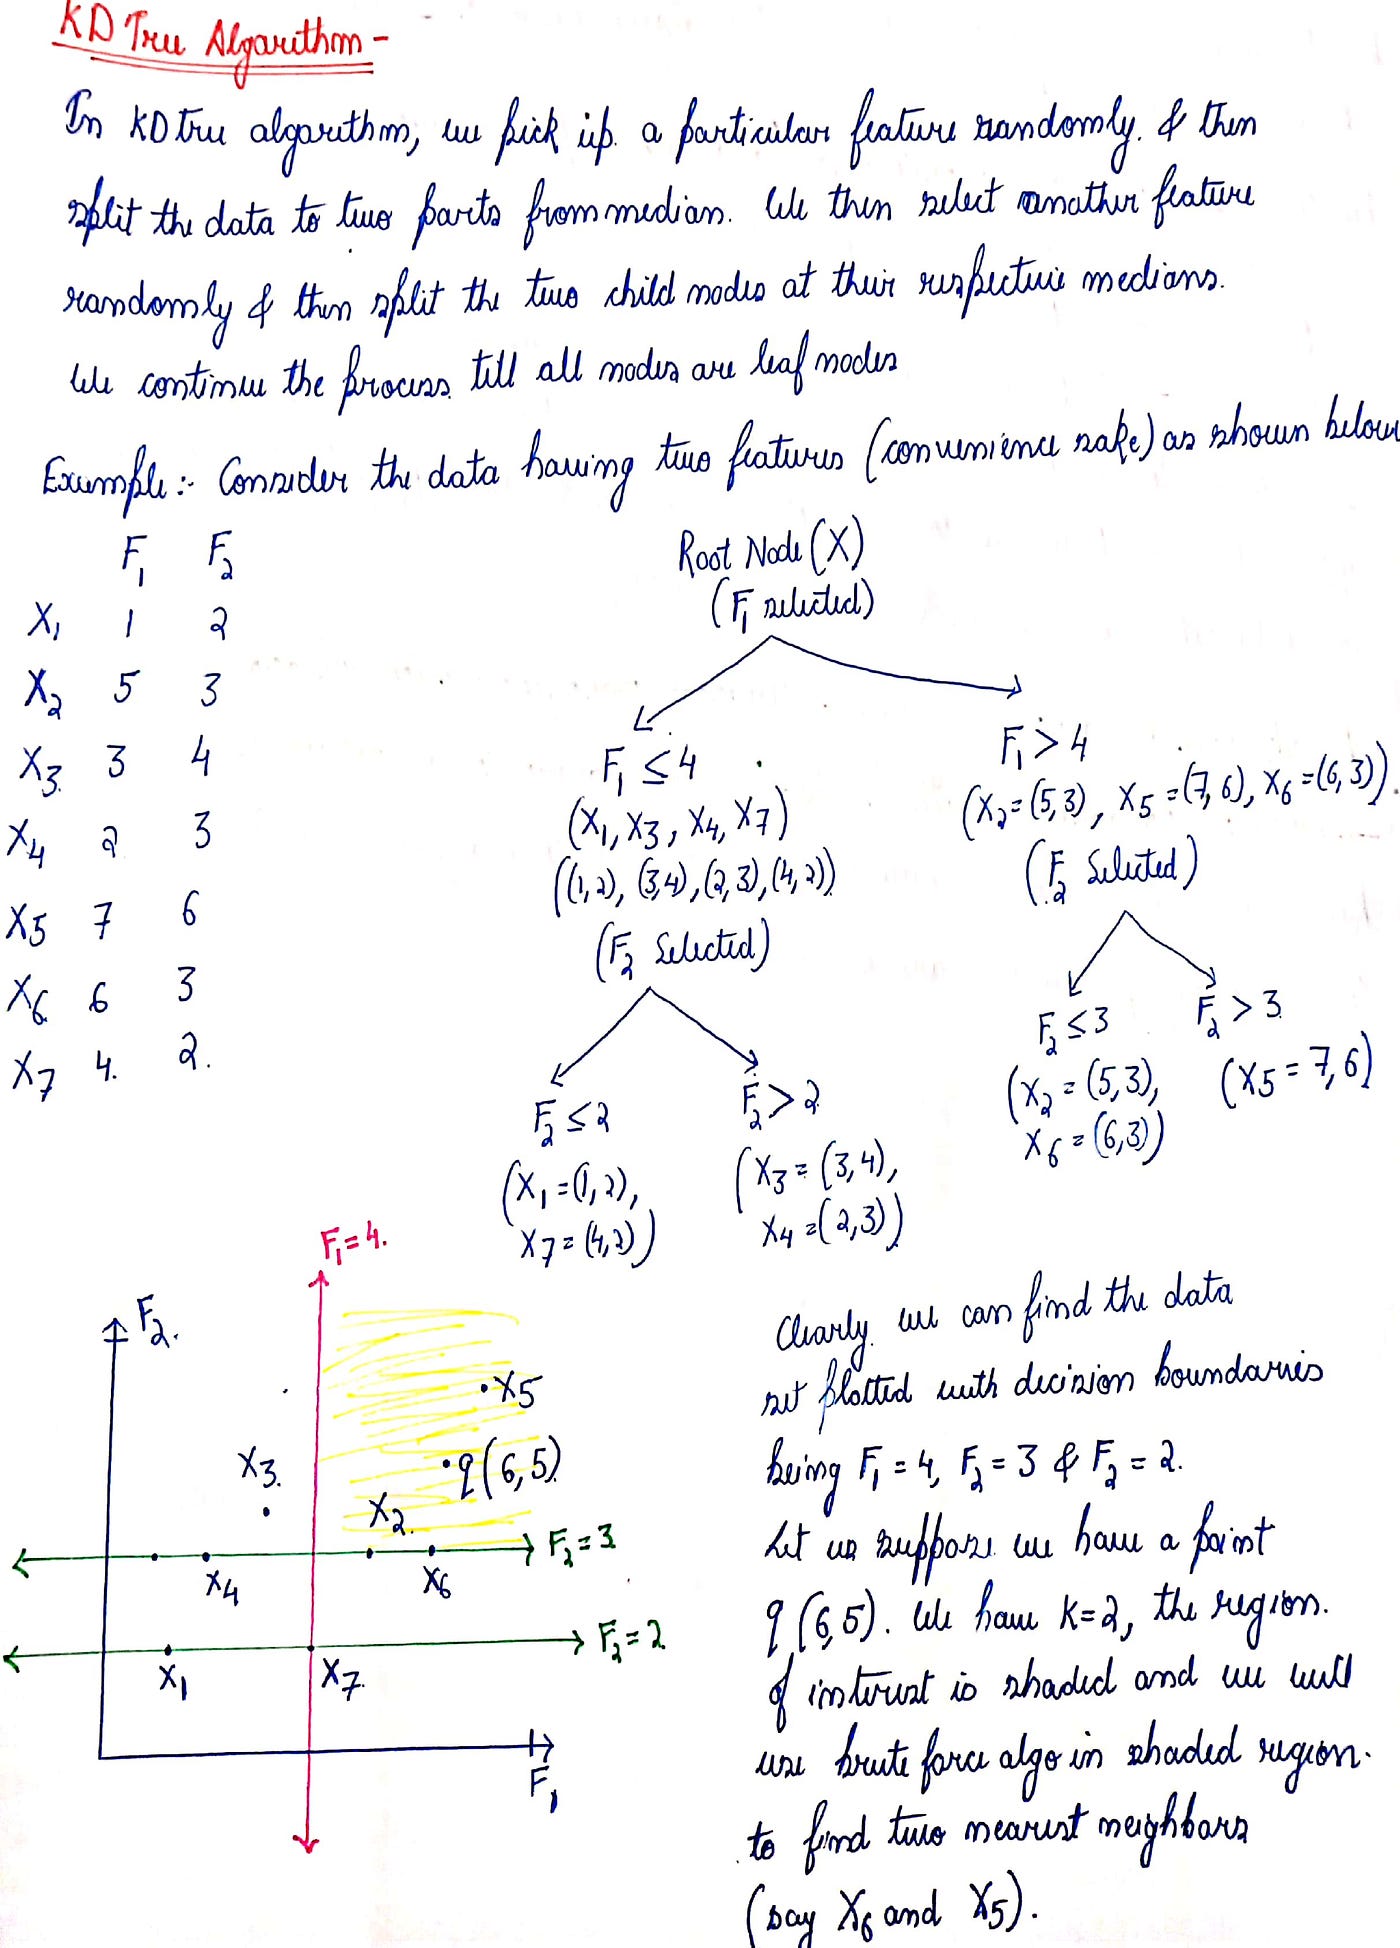 KD Tree Algorithm -
In KD tree algorithm, we pick up a particular feature randomly & then
split the data to two parts from median. We then select another feature
randomly & then split the two child nodes at their respective medians.
We continue the process till all nodes are leaf nodes
Example :- Consider the data having two features (convenience sake) as shown below
F1 F2
X1 1 2
X2 5 3
X3 3 4
X4 2 3
X5 7 6
X6 6 3
X7 4. 2.
Root Node (X)
(F1 selected)
F1 ≤ 4
(X1, X3, X4, X7)
((1,2), (3,4), (2,3), (4,2))
(F2 Selected)
F1 > 4
(X2=(5,3), X5=(7,6), X6=(6,3))
(F2 Selected)
F2 ≤ 2
(X1=(1,2),
X7=(4,2))
F2 > 2
(X3=(3,4),
X4=(2,3))
F2 ≤ 3
(X2=(5,3),
X6=(6,3))
F2 > 3
(X5=7,6)
F1=4.
F2.
X5
X3.
q(6,5)
X2.
F2=3
X4
X6
F2=2
X1
X7.
F1
Clearly we can find the data
set plotted with decision boundaries
being F1=4, F2=3 & F2=2.
Let us suppose we have a point
q(6,5). We have K=2, the region.
of interest is shaded and we will
use brute force algo in shaded region.
to find two nearest neighbors
(say X6 and X5).